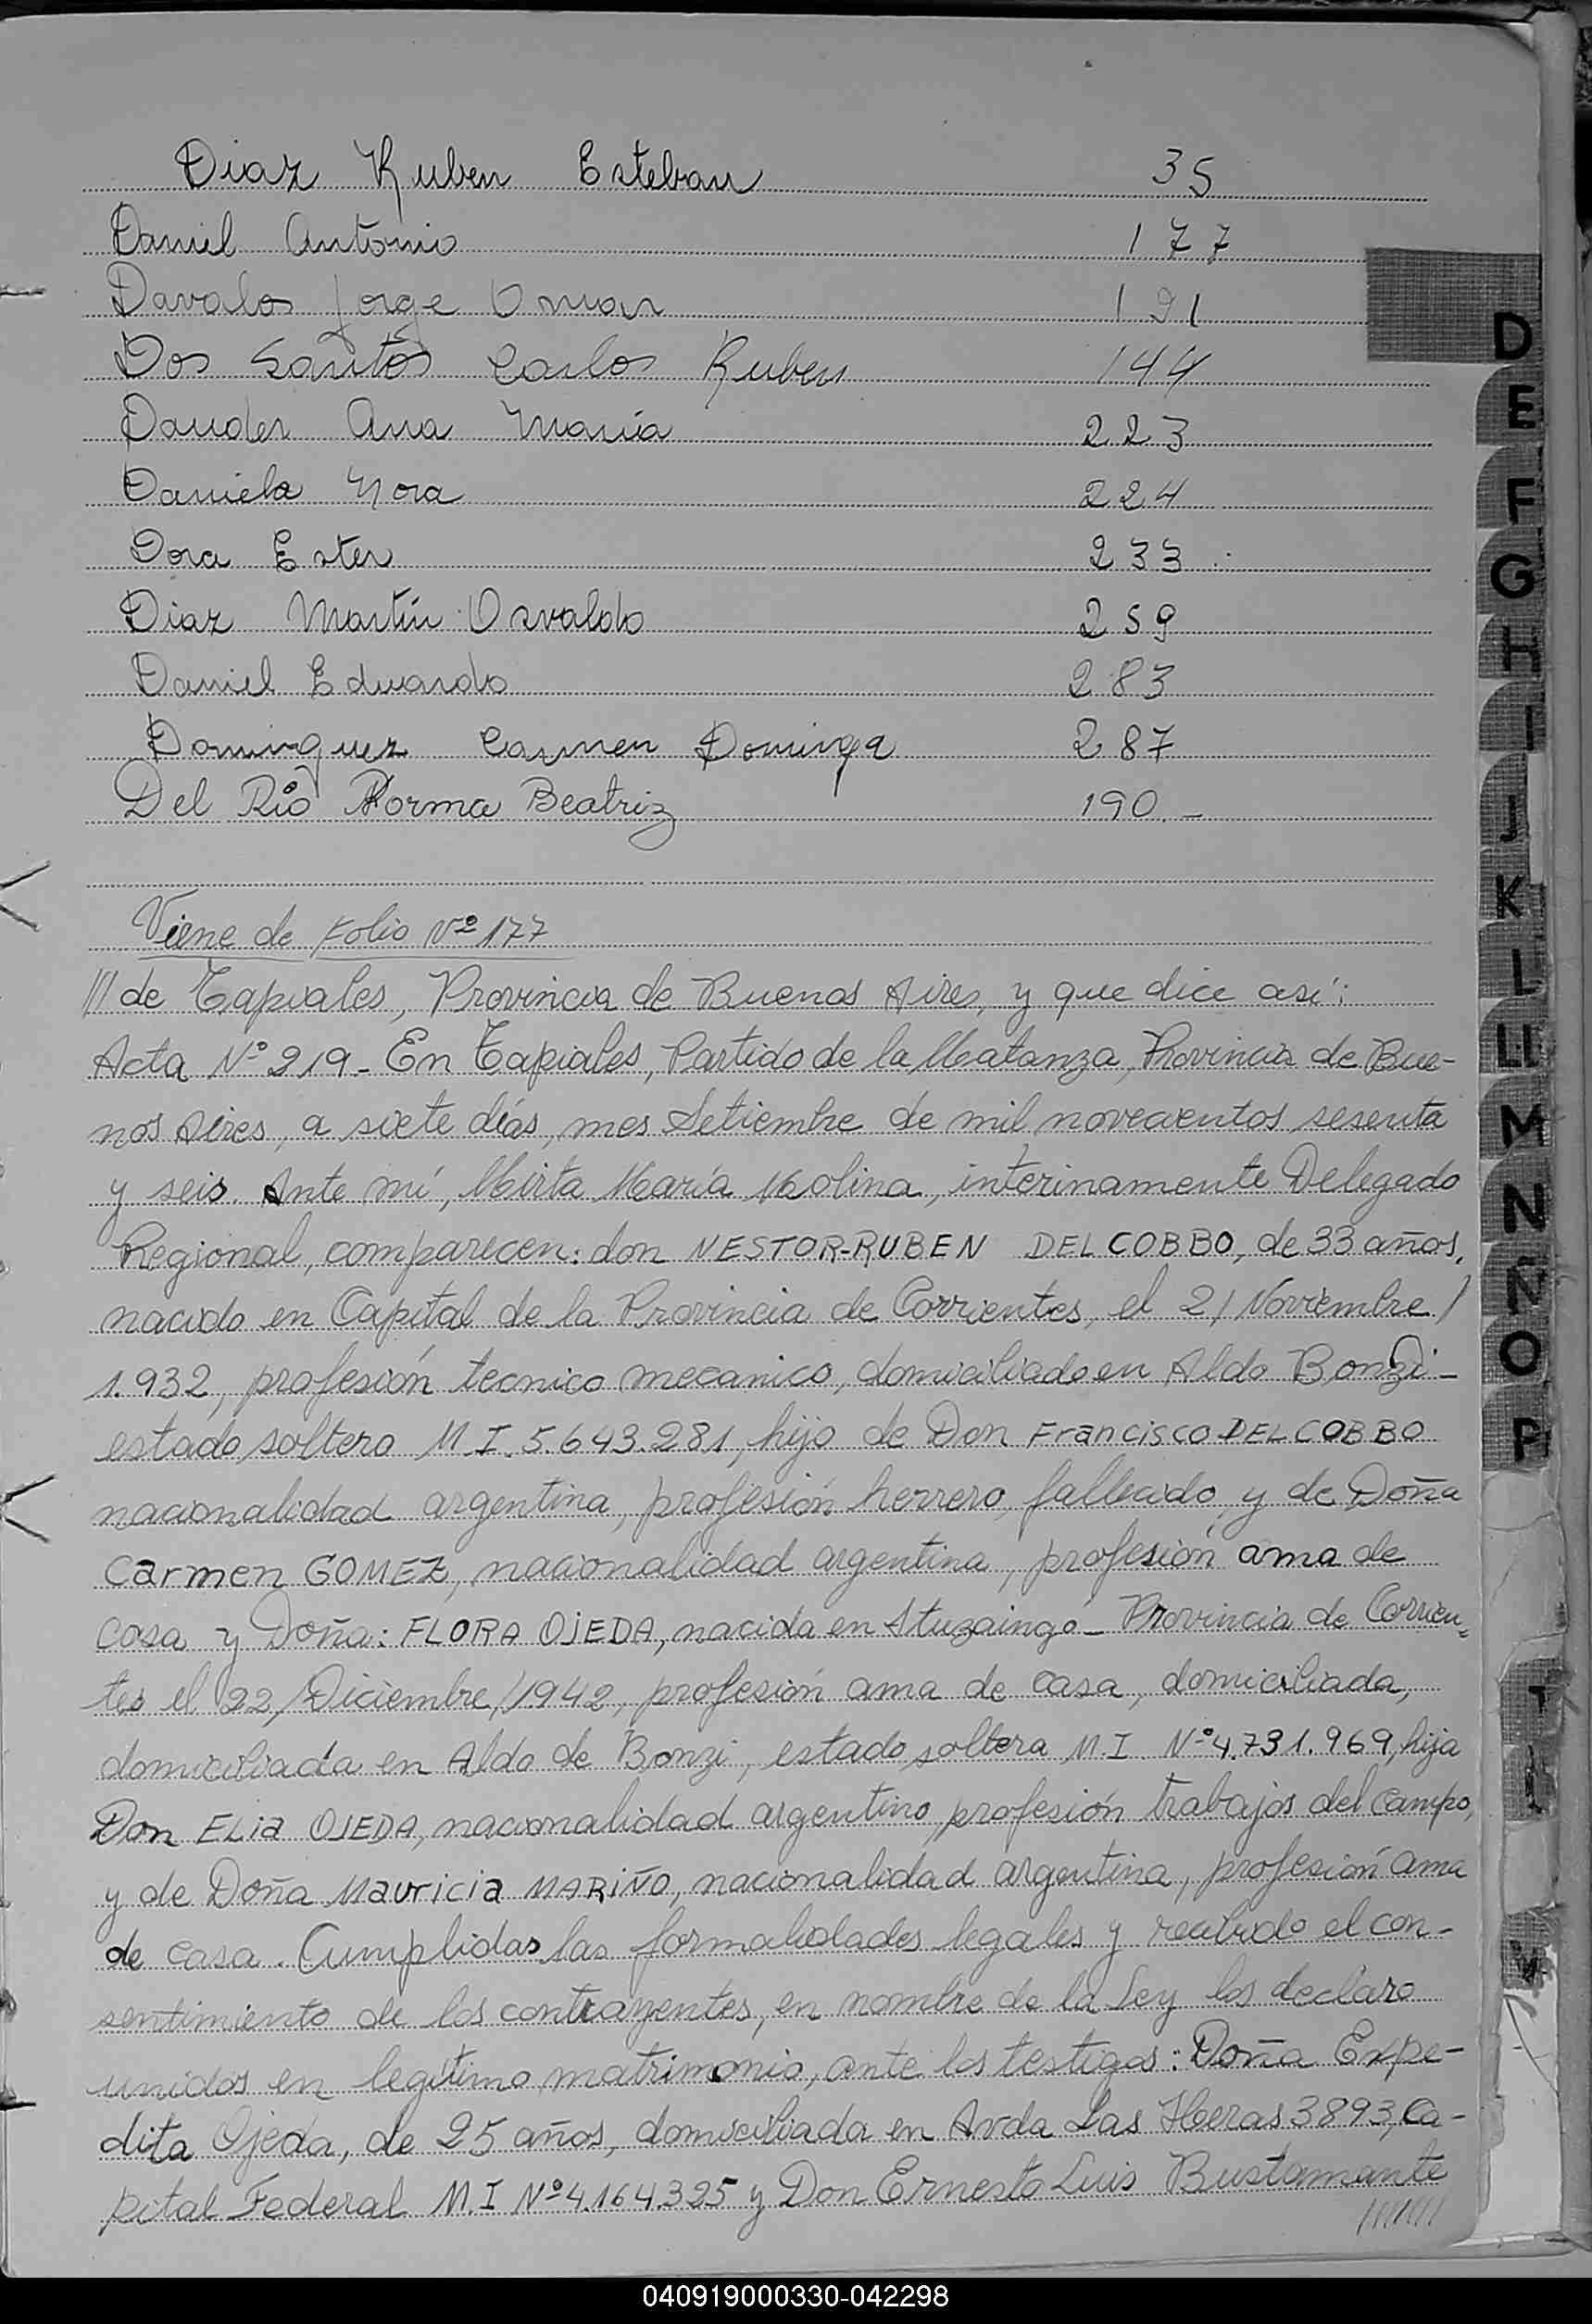 Diaz Ruben Esteban 35
Daniel Antonio 177
Davalos Jorge Omar 191
Dos Santos Carlos Ruben 144
Dauder Ana Maria 223
Daniela Nora 224
Dora Ester 233
Diaz Martín Osvaldo 259
Daniel Eduardo 283
Dominguez Carmen Dominga 287
Del Río Norma Beatriz 190.-
Viene de Folio Nº 177
/// de Tapiales, Provincia de Buenos Aires, y que dice así:
Acta Nº 219 - En Tapiales, Partido de la Matanza, Provincia de Bue-
nos Aires, a siete días, mes Setiembre de mil novecientos sesenta
y seis. Ante mí, Mirta María Molina, interinamente Delegado
Regional, comparecen: don NESTOR-RUBEN DEL COBBO, de 33 años,
nacido en Capital de la Provincia de Corrientes, el 21 Noviembre/
1.932, profesión tecnico mecanico, domiciliado en Aldo Bonzi-
estado soltero M.I. 5.643.281, hijo de Don Francisco DEL COBBO
nacionalidad argentina, profesión herrero, fallecido, y de Doña
Carmen GOMEZ, nacionalidad argentina, profesión ama de
casa y Doña: FLORA OJEDA, nacida en Ituzaingó - Provincia de Corrien=
tes el 22/Diciembre/1942, profesión ama de casa, domiciliada,
domiciliada en Aldo de Bonzi, estado soltera M.I. Nº 4.731.969, hija
Don ELia OJEDA, nacionalidad argentino, profesión trabajos del campo,
y de Doña Mauricia MARIÑO, nacionalidad argentina, profesión ama
de casa. Cumplidas las formalidades legales y recibido el con-
sentimiento de los contrayentes, en nombre de la Ley los declaro
unidos en legítimo matrimonio, ante los testigos: Doña Expe-
dita Ojeda, de 25 años, domiciliada en Avda Las Heras 3893, Ca-
pital Federal M.I Nº 4.164.325 y Don Ernesto Luis Bustamante
///////
D
E
F
G
H
I
J
K
L
LL
M
N
Ñ
O
P
T
040919000330-042298